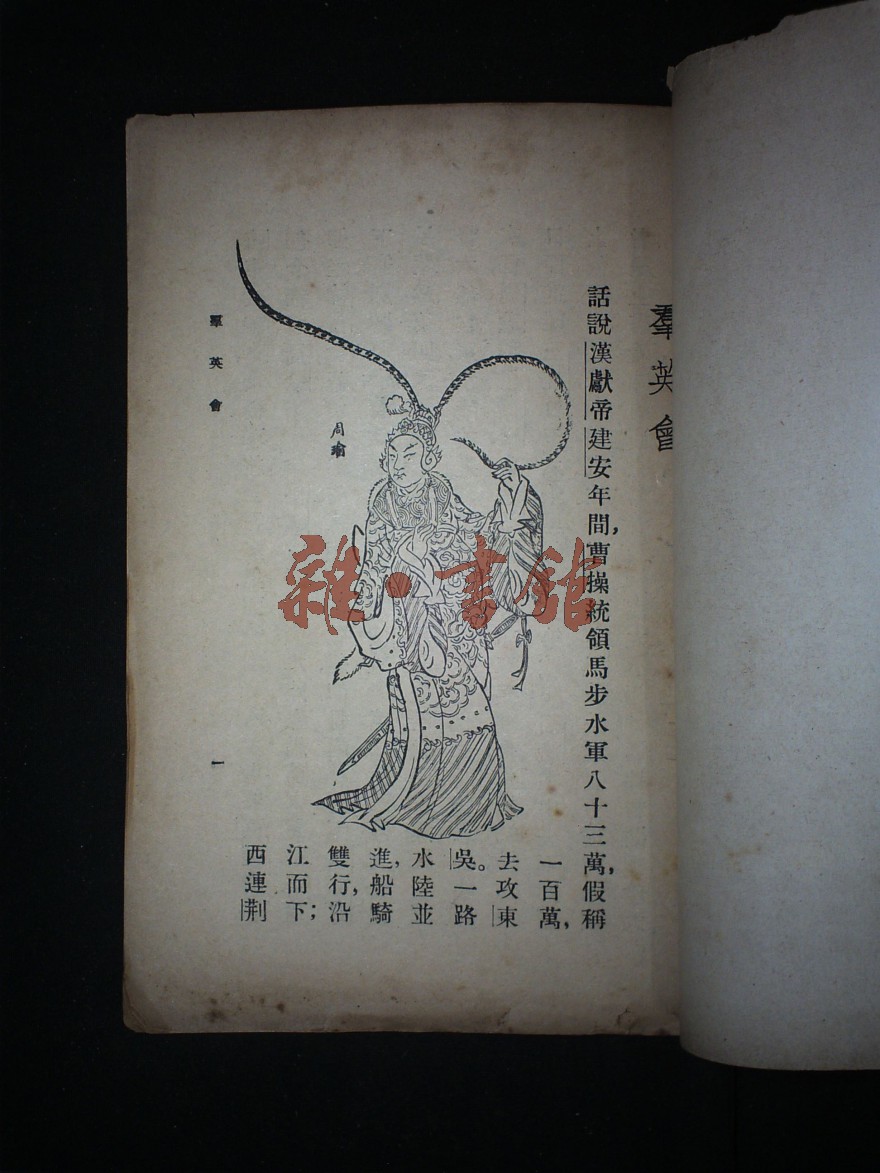 羣英會
話說漢獻帝建安年間，曹操統領馬步水軍八十三萬，假稱
一百萬，
去攻東
吳。一路
水陸並
進，船騎
雙行，沿
江而下；
西連荆
周瑜
羣英會
一
雜·書館